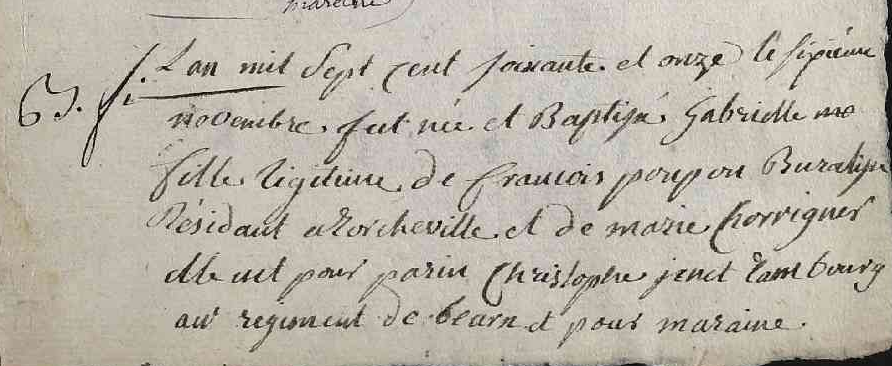 maraine
63. fi. L'an mil Sept cent soixante et onze le sixieme
novembre. fut née et Baptisé Gabrielle
fille legitime de francois poupon Buraliste
Résidant a Rorcheville et de marie Chorvigner
elle eut pour parin Christophe jenet tambourg
au regiment de bearn et pour maraine.